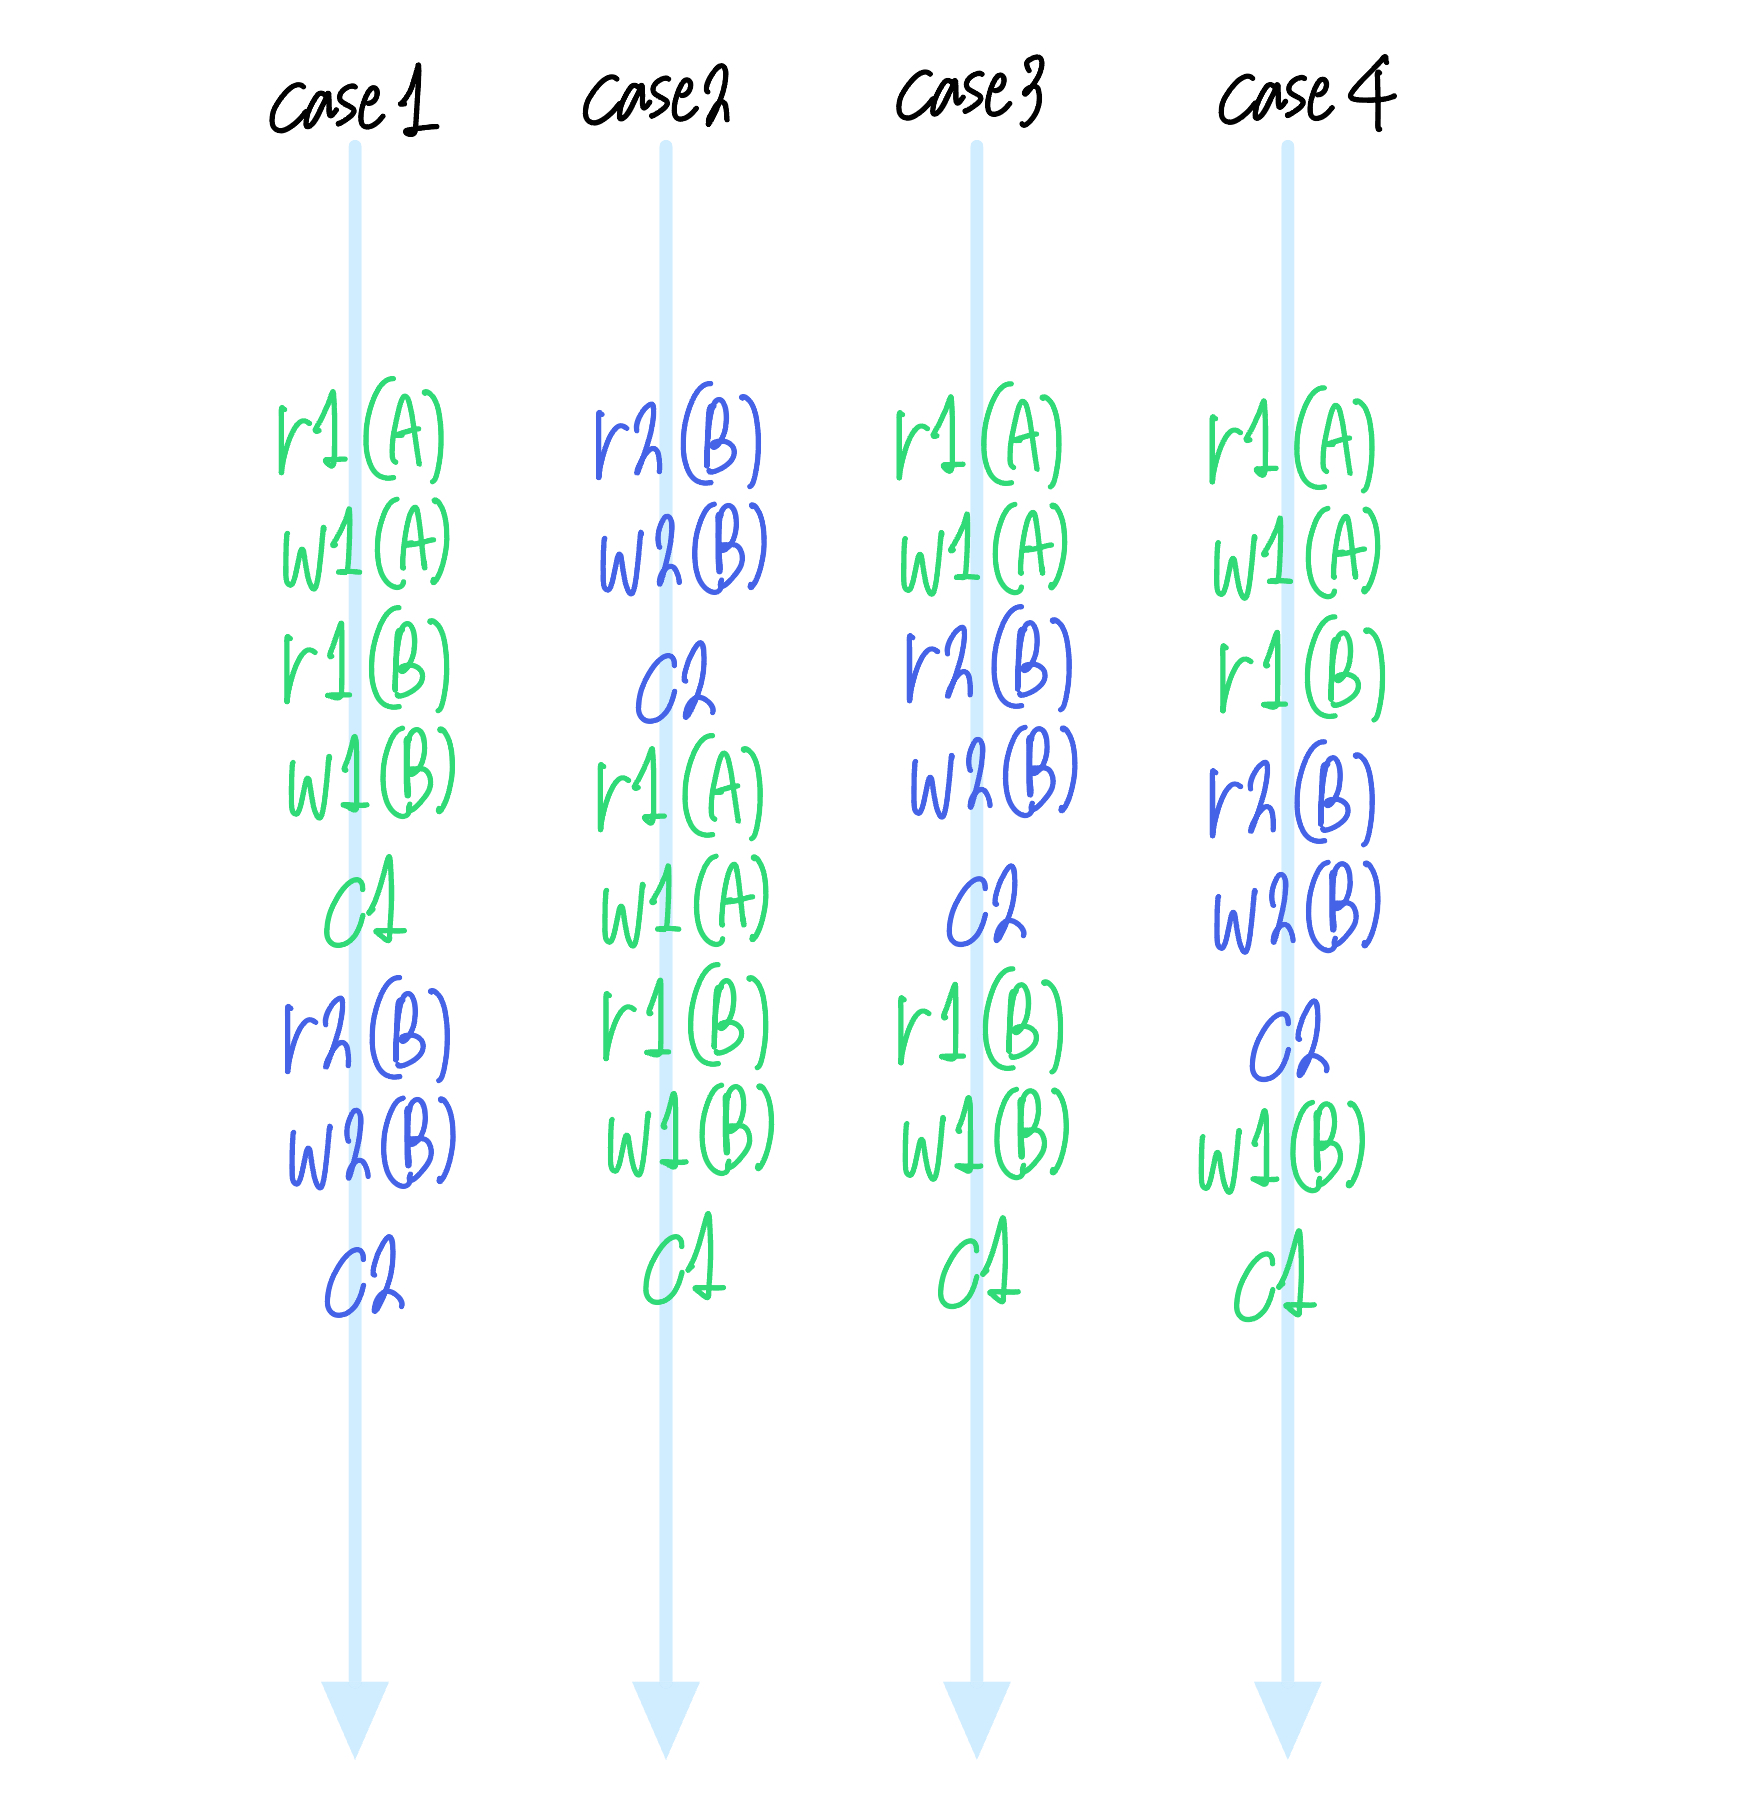 case1
r1(A)
w1(A)
r1(B)
w1(B)
c1
r2(B)
w2(B)
c2
case2
r2(B)
w2(B)
c2
r1(A)
w1(A)
r1(B)
w1(B)
c1
case3
r1(A)
w1(A)
r2(B)
w2(B)
c2
r1(B)
w1(B)
c1
case4
r1(A)
w1(A)
r1(B)
r2(B)
w2(B)
c2
w1(B)
c1